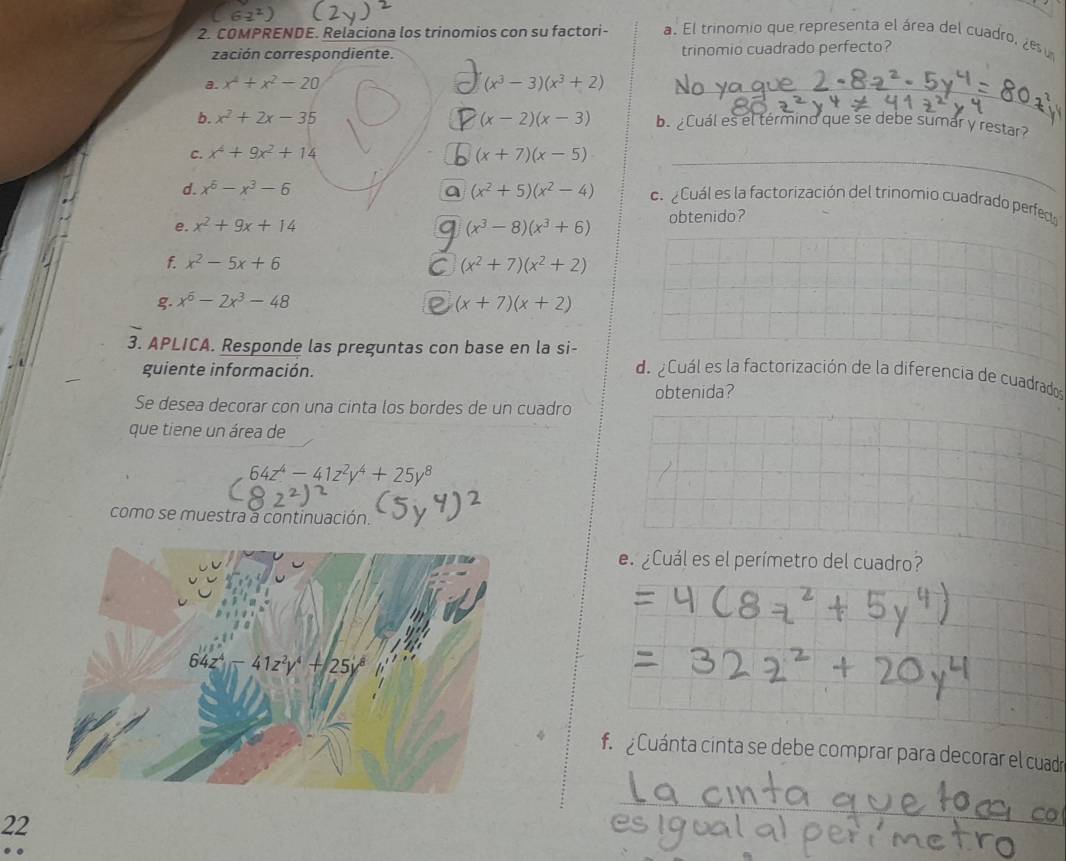 (6z²) (2y)²
2. COMPRENDE. Relaciona los trinomios con su factori-
zación correspondiente.
a. x⁴ + x² − 20
b. x² + 2x − 35
c. x⁴ + 9x² + 14
d. x⁶ − x³ − 6
e. x² + 9x + 14
f. x² − 5x + 6
g. x⁶ − 2x³ − 48
10
d (x³ − 3)(x³ + 2)
F (x − 2)(x − 3)
b (x + 7)(x − 5)
a (x² + 5)(x² − 4)
g (x³ − 8)(x³ + 6)
c (x² + 7)(x² + 2)
e (x + 7)(x + 2)
3. APLICA. Responde las preguntas con base en la si-
guiente información.
Se desea decorar con una cinta los bordes de un cuadro
que tiene un área de
64z⁴ − 41z²y⁴ + 25y⁸
(8z²)² (5y⁴)²
como se muestra a continuación.
64z⁴ − 41z²y⁴ + 25y⁸
22
a. El trinomio que representa el área del cuadro, ¿es un
trinomio cuadrado perfecto?
No ya que 2·8z²·5y⁴ = 80z²y⁴
80z²y⁴ ≠ 41z²y⁴
b. ¿Cuál es el término que se debe sumar y restar?
c. ¿Cuál es la factorización del trinomio cuadrado perfecto
obtenido?
d. ¿Cuál es la factorización de la diferencia de cuadrados
obtenida?
e. ¿Cuál es el perímetro del cuadro?
= 4(8z² + 5y⁴)
= 32z² + 20y⁴
f. ¿Cuánta cinta se debe comprar para decorar el cuadr
La cinta que toca co
es igual al perímetro